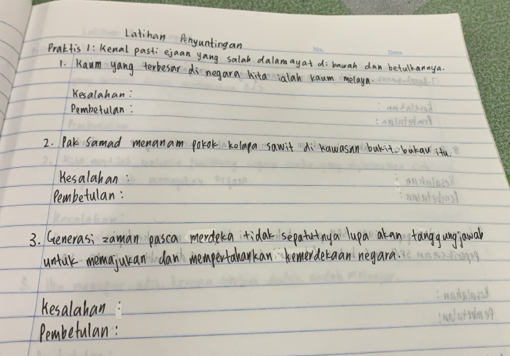 Latihan Penyuntingan
Praktis 1: Kenal pasti ejaan yang salah dalam ayat di bawah dan betulkannya.
1. Kaum yang terbesar di negara kita ialah kaum melayu.
Kesalahan :
Pembetulan :
2. Pak Samad menanam pokok kelapa sawit di kawasan bukit-bukau itu.
Kesalahan :
Pembetulan :
3. Generasi zaman pasca merdeka tidak sepatutnya lupa akan tanggungjawab
untuk memajukan dan mempertahankan kemerdekaan negara.
Kesalahan :
Pembetulan :